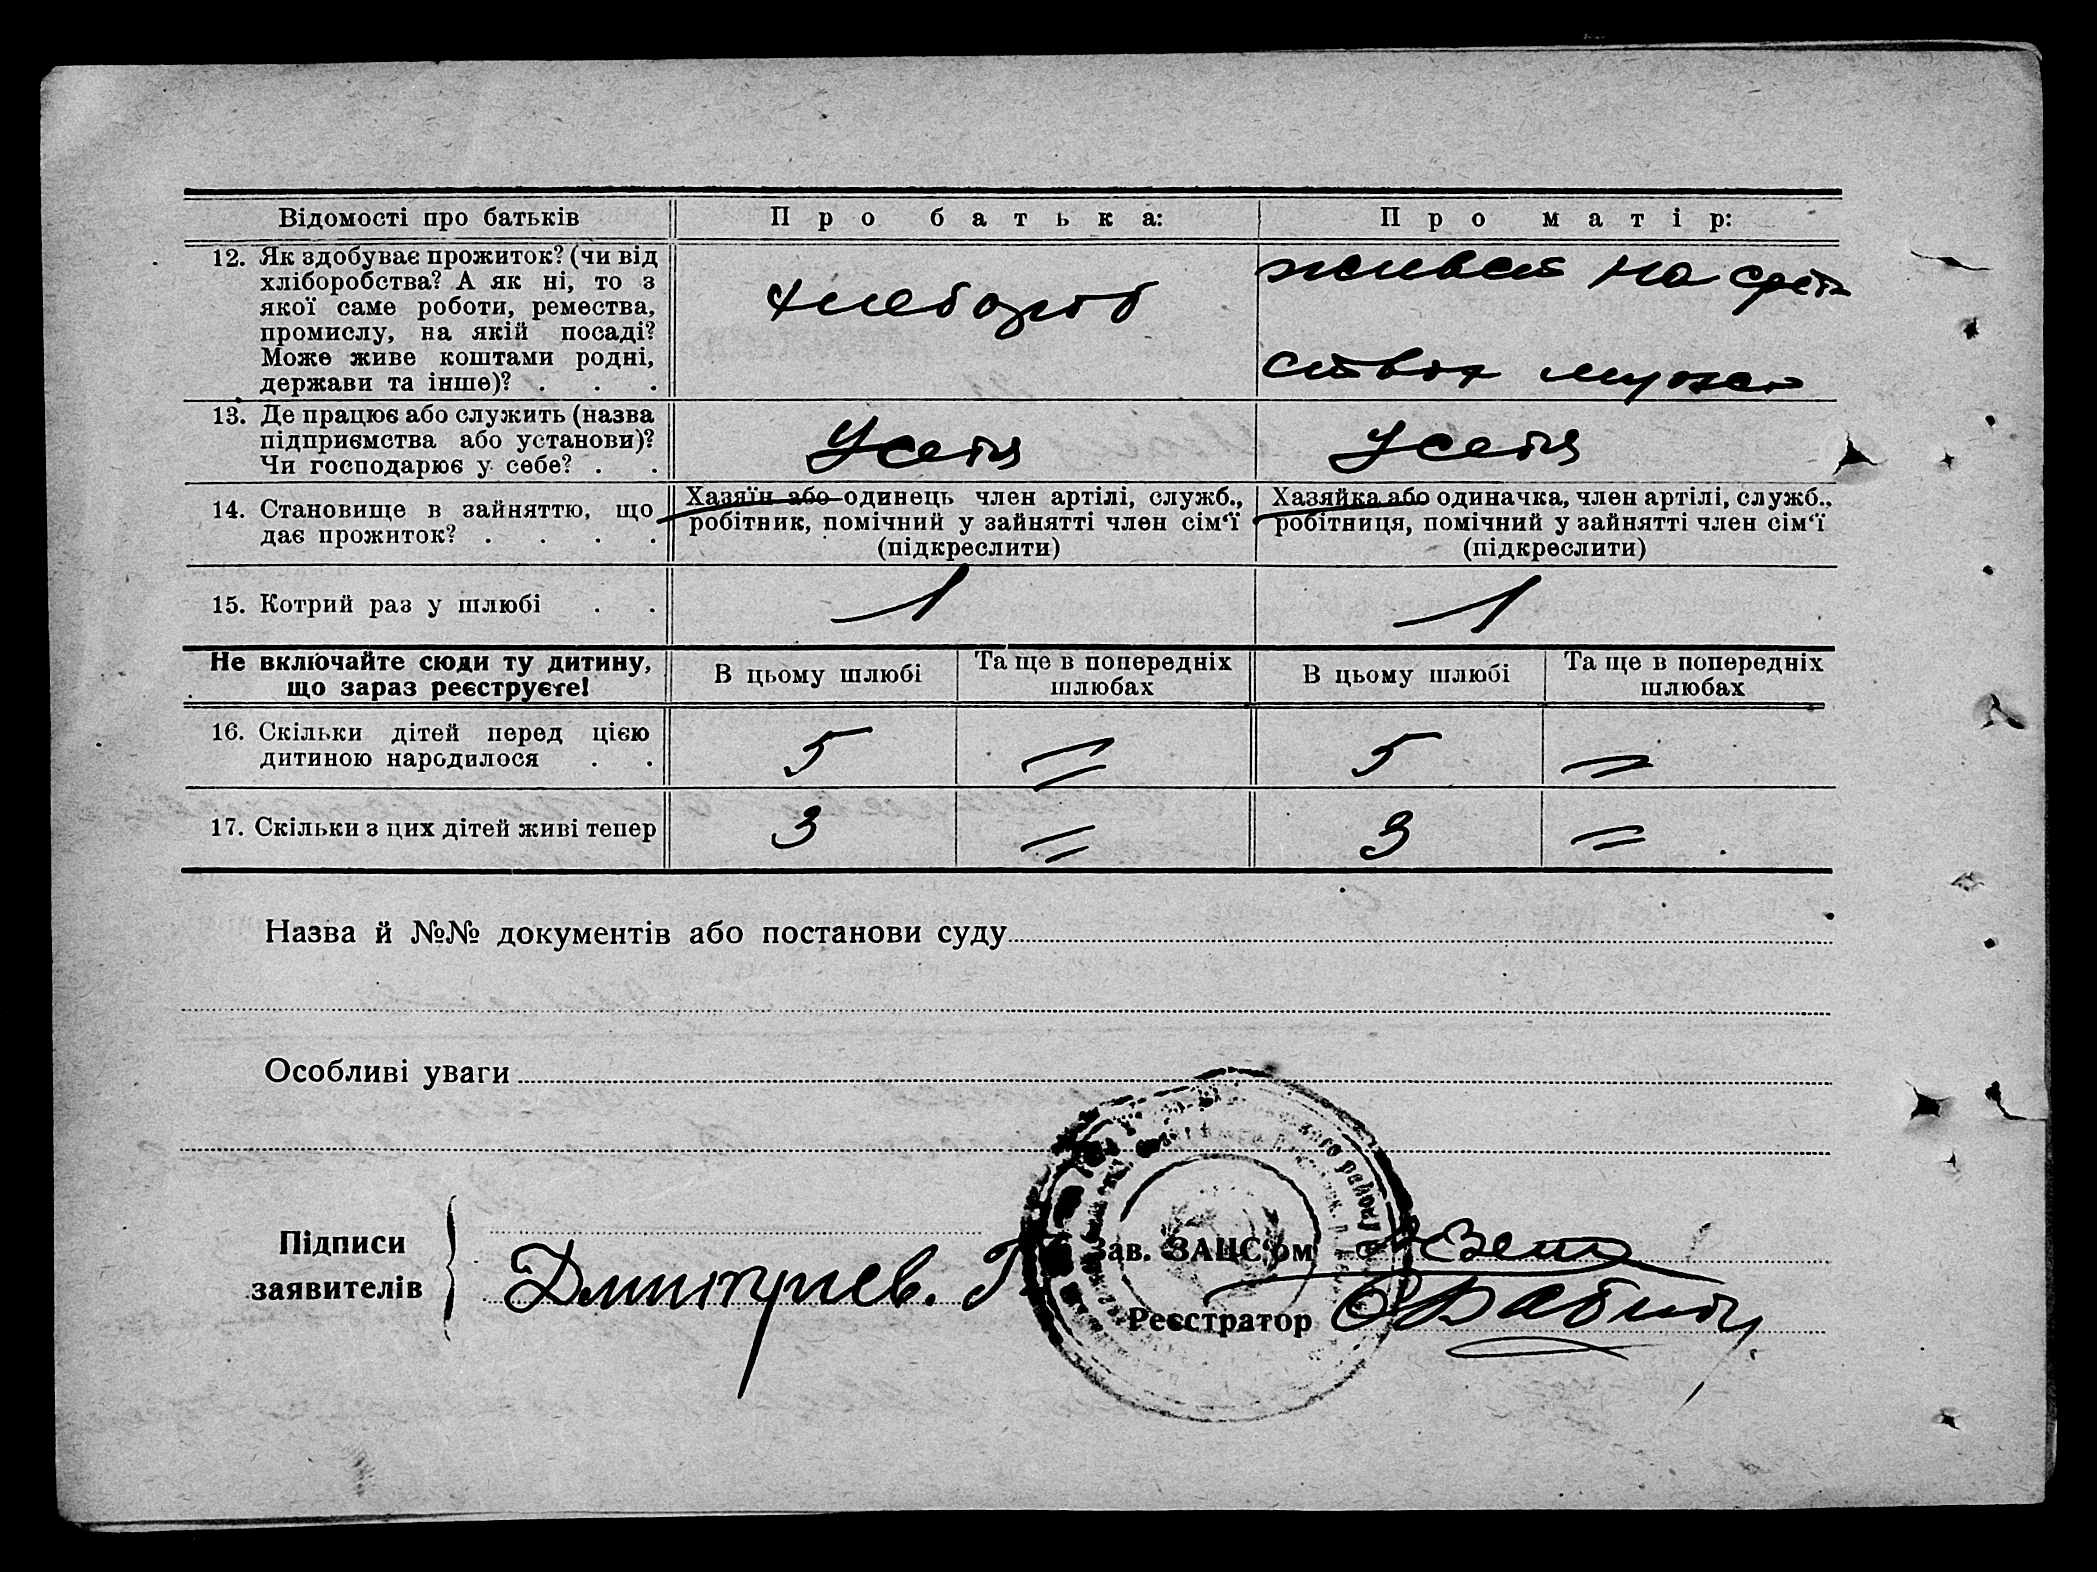 Відомості про батьків
Про батька:
Про матір:
12. Як здобуває прожиток? (чи від
хліборобства? А як ні, то з
якої саме роботи, ремества,
промислу, на якій посаді?
Може живе коштами родні,
держави та інше)? . . .
хлебороб
живет на сред
ствах мужа
13. Де працює або служить (назва
підприємства або установи)?
Чи господарює у себе? . .
У себя
У себя
14. Становище в зайняттю, що
дає прожиток? . . . .
Хазяїн або одинець член артілі, служб.,
робітник, помічний у зайнятті член сім'ї
(підкреслити)
Хазяйка або одиначка, член артілі, служб.,
робітниця, помічний у зайнятті член сім'ї
(підкреслити)
15. Котрий раз у шлюбі . .
1
1
Не включайте сюди ту дитину,
що зараз реєструєте!
В цьому шлюбі
Та ще в попередніх
шлюбах
В цьому шлюбі
Та ще в попередніх
шлюбах
16. Скільки дітей перед цією
дитиною народилося . .
5
=
5
=
17. Скільки з цих дітей живі тепер
3
=
3
=
Назва й №№ документів або постанови суду
Особливі уваги
Підписи
заявителів
Дмитриев. Г
Зав. ЗАЦС'ом
Реєстратор
району